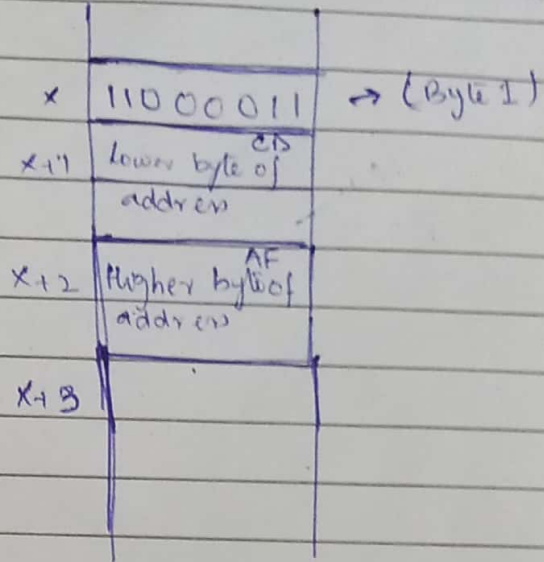 x 11000011 → (Byte 1)
CD
x+1 Lower byte of
address
AF
x+2 Higher byte of
address
x+3